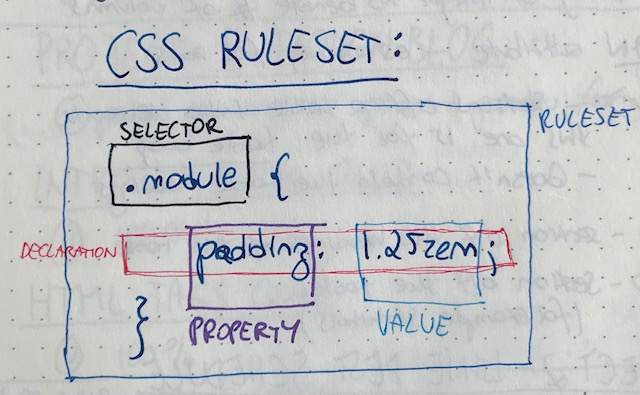 CSS RULESET:
RULESET
SELECTOR
.module {
DECLARATION padding: 1.25rem;
} PROPERTY VALUE